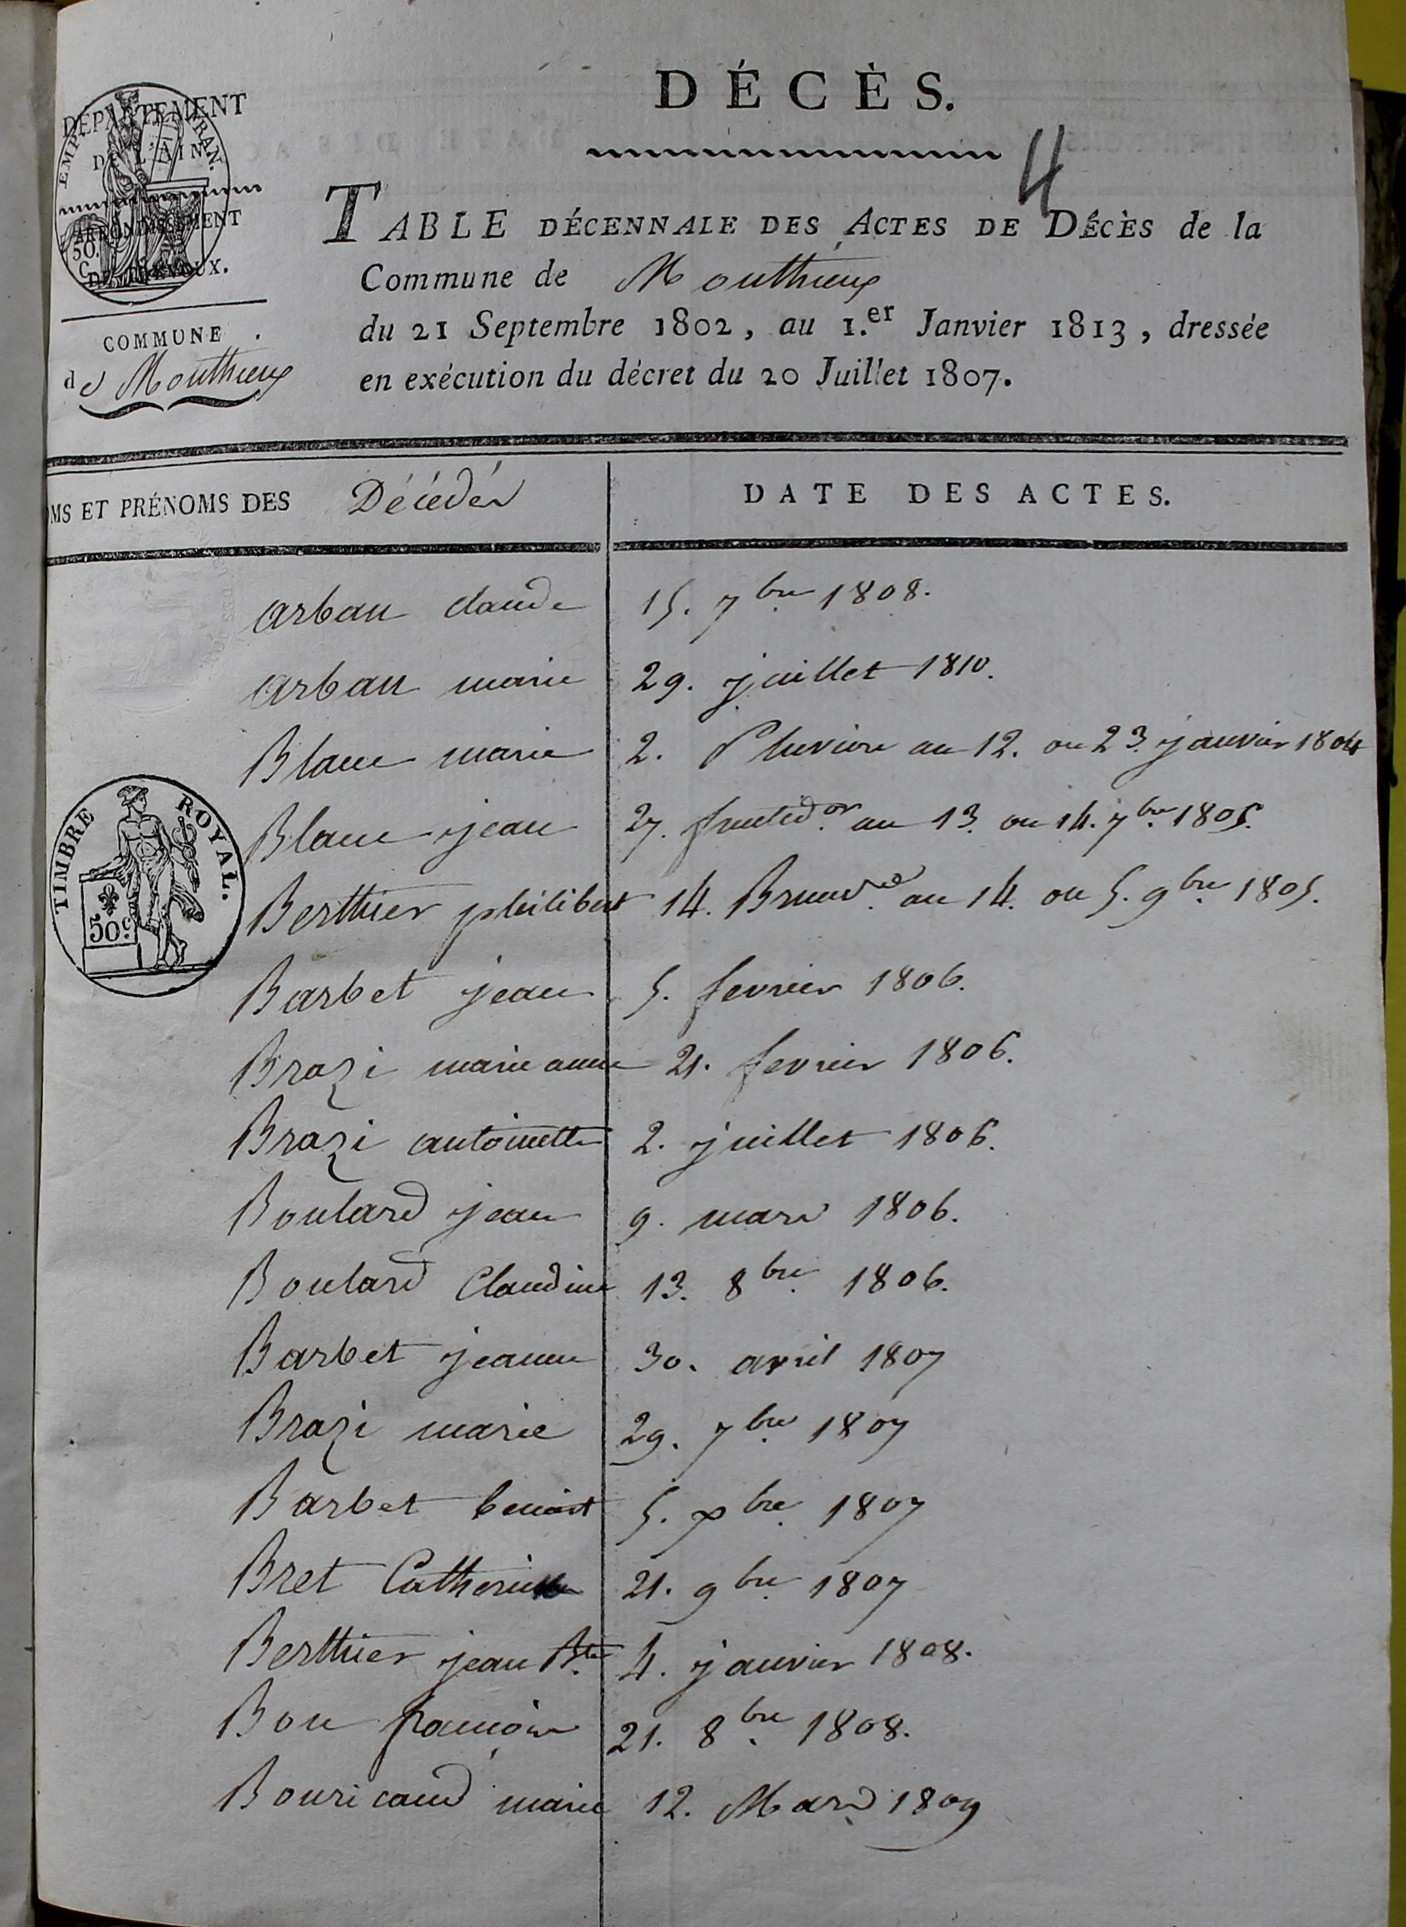 DÉCÈS.
4
DÉPARTEMENT
DE L'AIN
EMP. FRAN.
ARRONDISSEMENT
50.
C.
DE TRÉVOUX.
COMMUNE
de Monthieux
TABLE DÉCENNALE DES ACTES DE DÉCÈS de la
Commune de Monthieux
du 21 Septembre 1802, au 1.er Janvier 1813, dressée
en exécution du décret du 20 Juillet 1807.
OMS ET PRÉNOMS DES Décédés
DATE DES ACTES.
arban claude 15. 7bre 1808.
arban marie 29. juillet 1810.
Blanc marie 2. Pluviose an 12. ou 23. janvier 1804
Blanc jean 27. fructidor an 13. ou 14. 7bre 1805.
TIMBRE ROYAL.
50c
Berthier philibert 14. Brumre an 14. ou 5. 9bre 1805.
Barbet jean 5. fevrier 1806.
Brazi marie anne 21. fevrier 1806.
Brazi antoinette 2. juillet 1806.
Boulard jean 9. mars 1806.
Boulard Claudine 13. 8bre 1806.
Barbet jeanne 30. avril 1807
Brazi marie 29. 7bre 1807
Barbet benoit 5. xbre 1807
Bret Catherine 21. 9bre 1807
Berthier jean Bte 4. janvier 1808.
Bon françois 21. 8bre 1808.
Bouricaud marie 12. Mars 1809